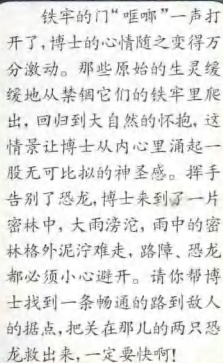 铁牢的门“哐啷”一声打
开了,博士的心情随之变得万
分激动。那些原始的生灵缓
缓地从禁锢它们的铁牢里爬
出,回归到大自然的怀抱,这
情景让博士从内心里涌起一
股无可比拟的神圣感。挥手
告别了恐龙,博士来到了一片
密林中,大雨滂沱,雨中的密
林格外泥泞难走,路障、恐龙
都必须小心避开。请你帮博
士找到一条畅通的路到敌人
的据点,把关在那儿的两只恐
龙救出来,一定要快啊!